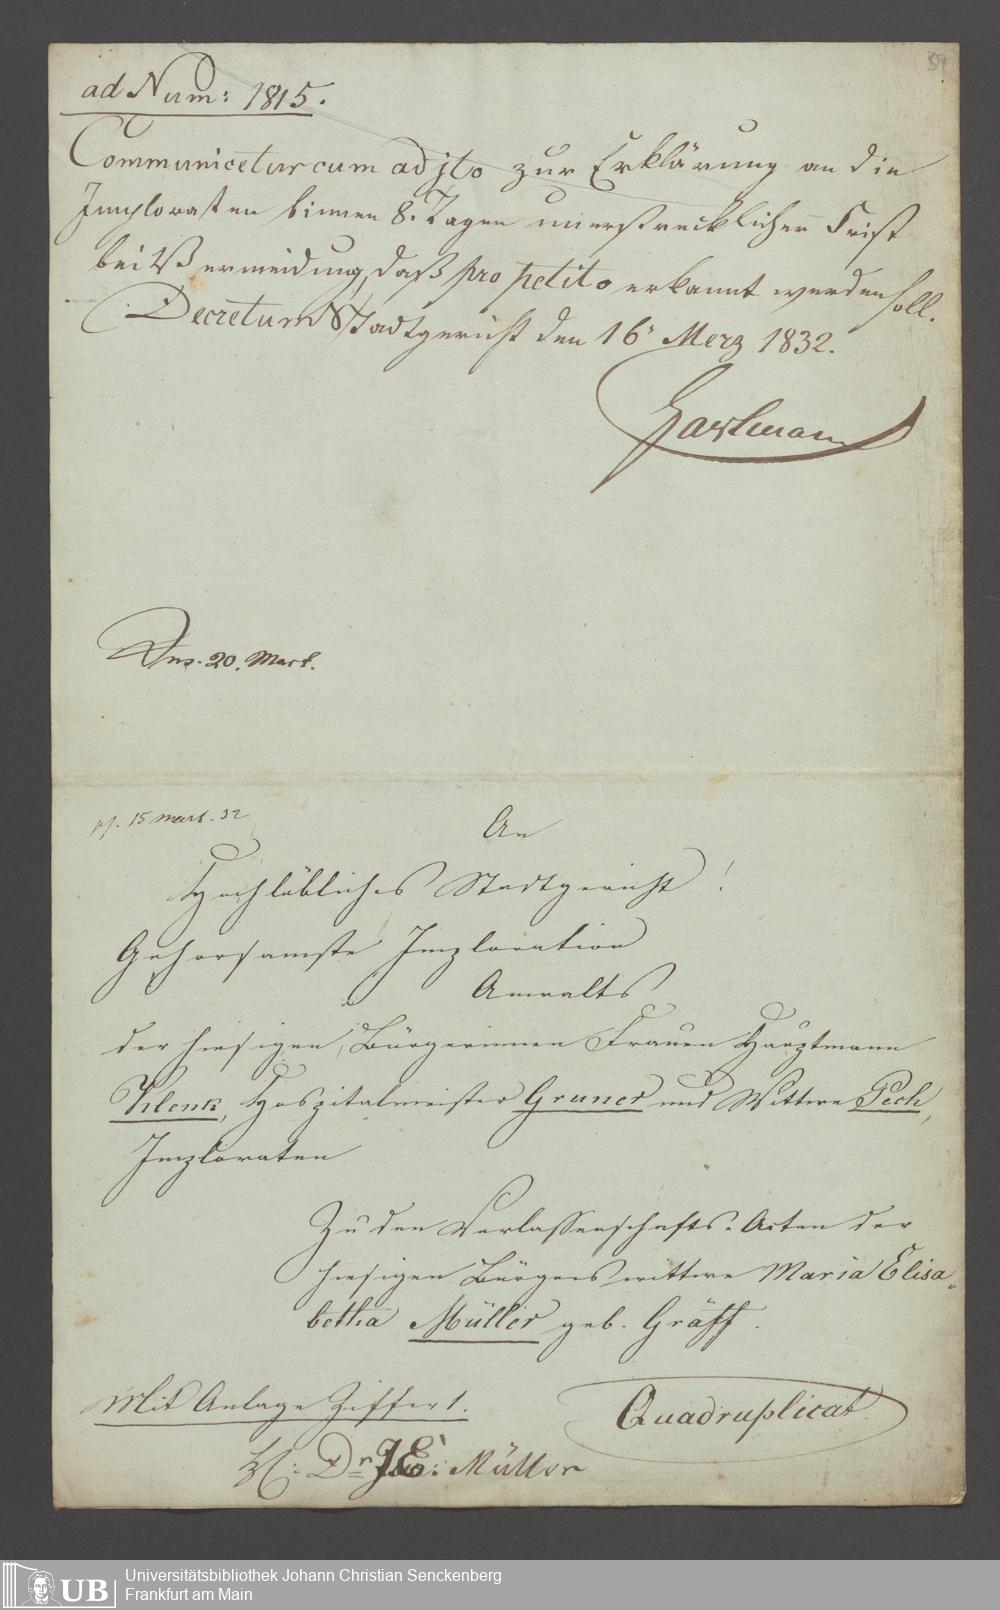 39
ad Num: 1815.
Communicetur cum adjto zur Erklärung an die
Imploraten binnen 8. Tagen unerstrecklicher Frist
bei Vermeidung, daß pro petito erkannt werden soll.
Decretum Stadtgericht den 16' Merz 1832.
Hartmann
Ins. 20. Mart.
pf. 15 Mart. 32
An
Hochlöbliches Stadtgericht!
Gehorsamste Imploration
Anwalts
der hiesigen Bürgerinnen Frauen Hauptmann
Klenk, Hospitalmeister Gruner und Wittwe Pech,
Imploraten
Zu den Verlassenschafts-Acten der
hiesigen Bürgerswittwe Maria Elisa-
betha Müller geb. Gräff.
Mit Anlage Ziffer 1.
Quadruplicat
Dr. J. E. Müller
UB
Universitätsbibliothek Johann Christian Senckenberg
Frankfurt am Main